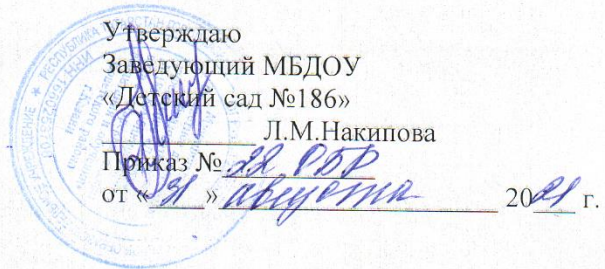 Утверждаю
Заведующий МБДОУ
«Детский сад №186»
Л.М.Накипова
Приказ № 22
от «31» августа 2021 г.